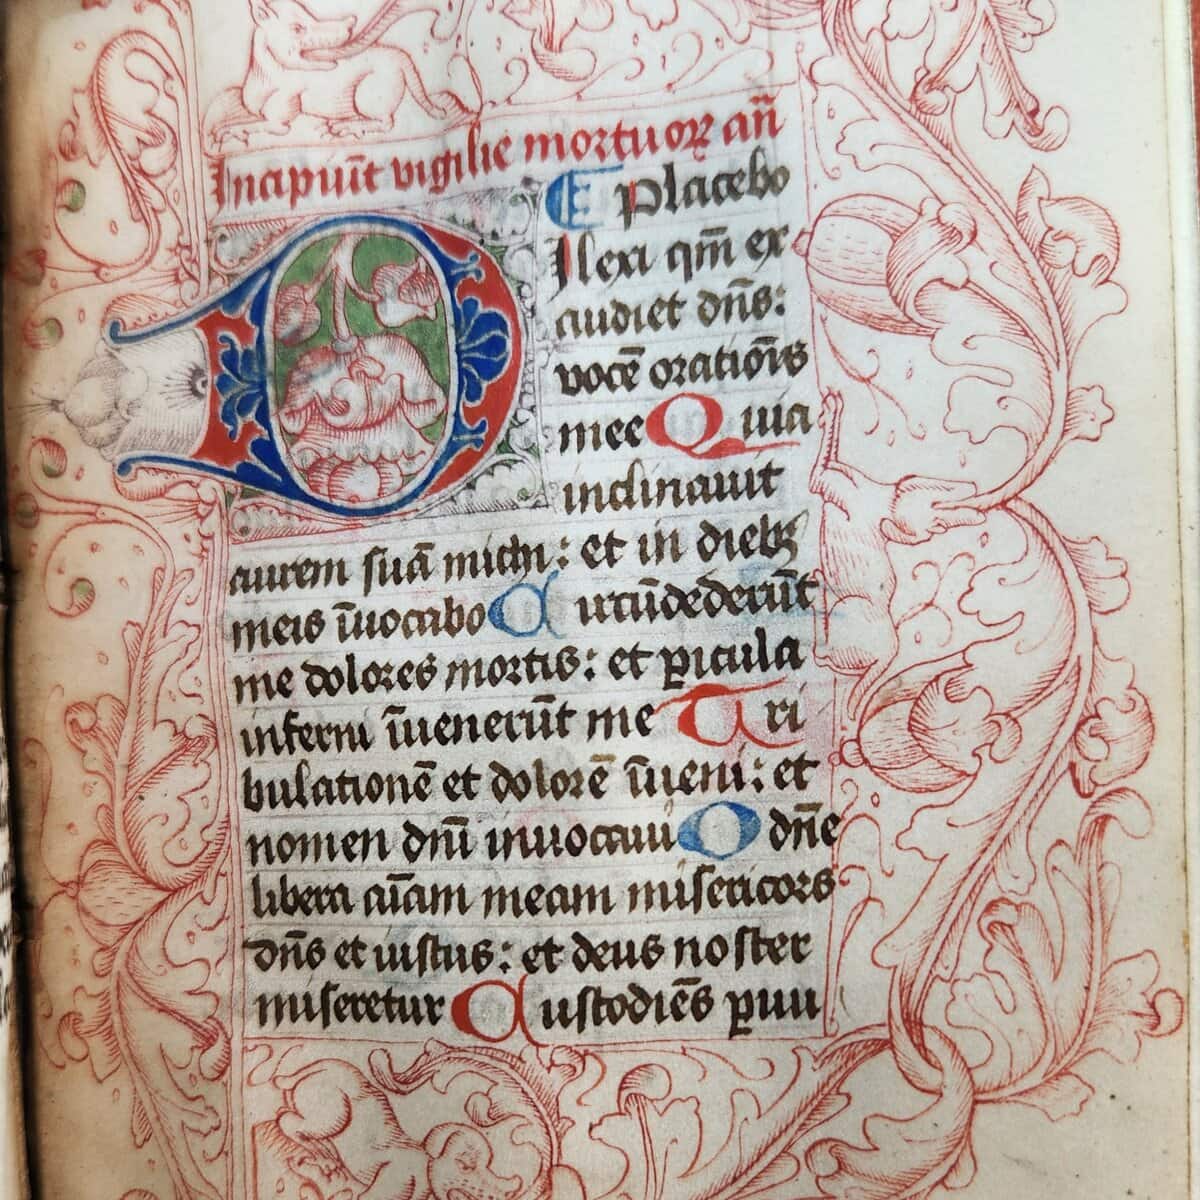 Incipiūt vigilie mortuoꝝ añ
Placebo
Dilexi qm̄ ex
audiet dn̄s:
vocē oratiōis
mee Quia
inclinauit
aurem suā michi: et in diebꝫ
meis īuocabo Circūdederūt
me dolores mortis: et ꝑicula
inferni īuenerūt me Tri
bulationē et dolorē īueni: et
nomen dn̄i inuocaui O dn̄e
libera aīam meam misericors
dn̄s et iustus: et deus noster
miseretur Custodiēs ꝑuu